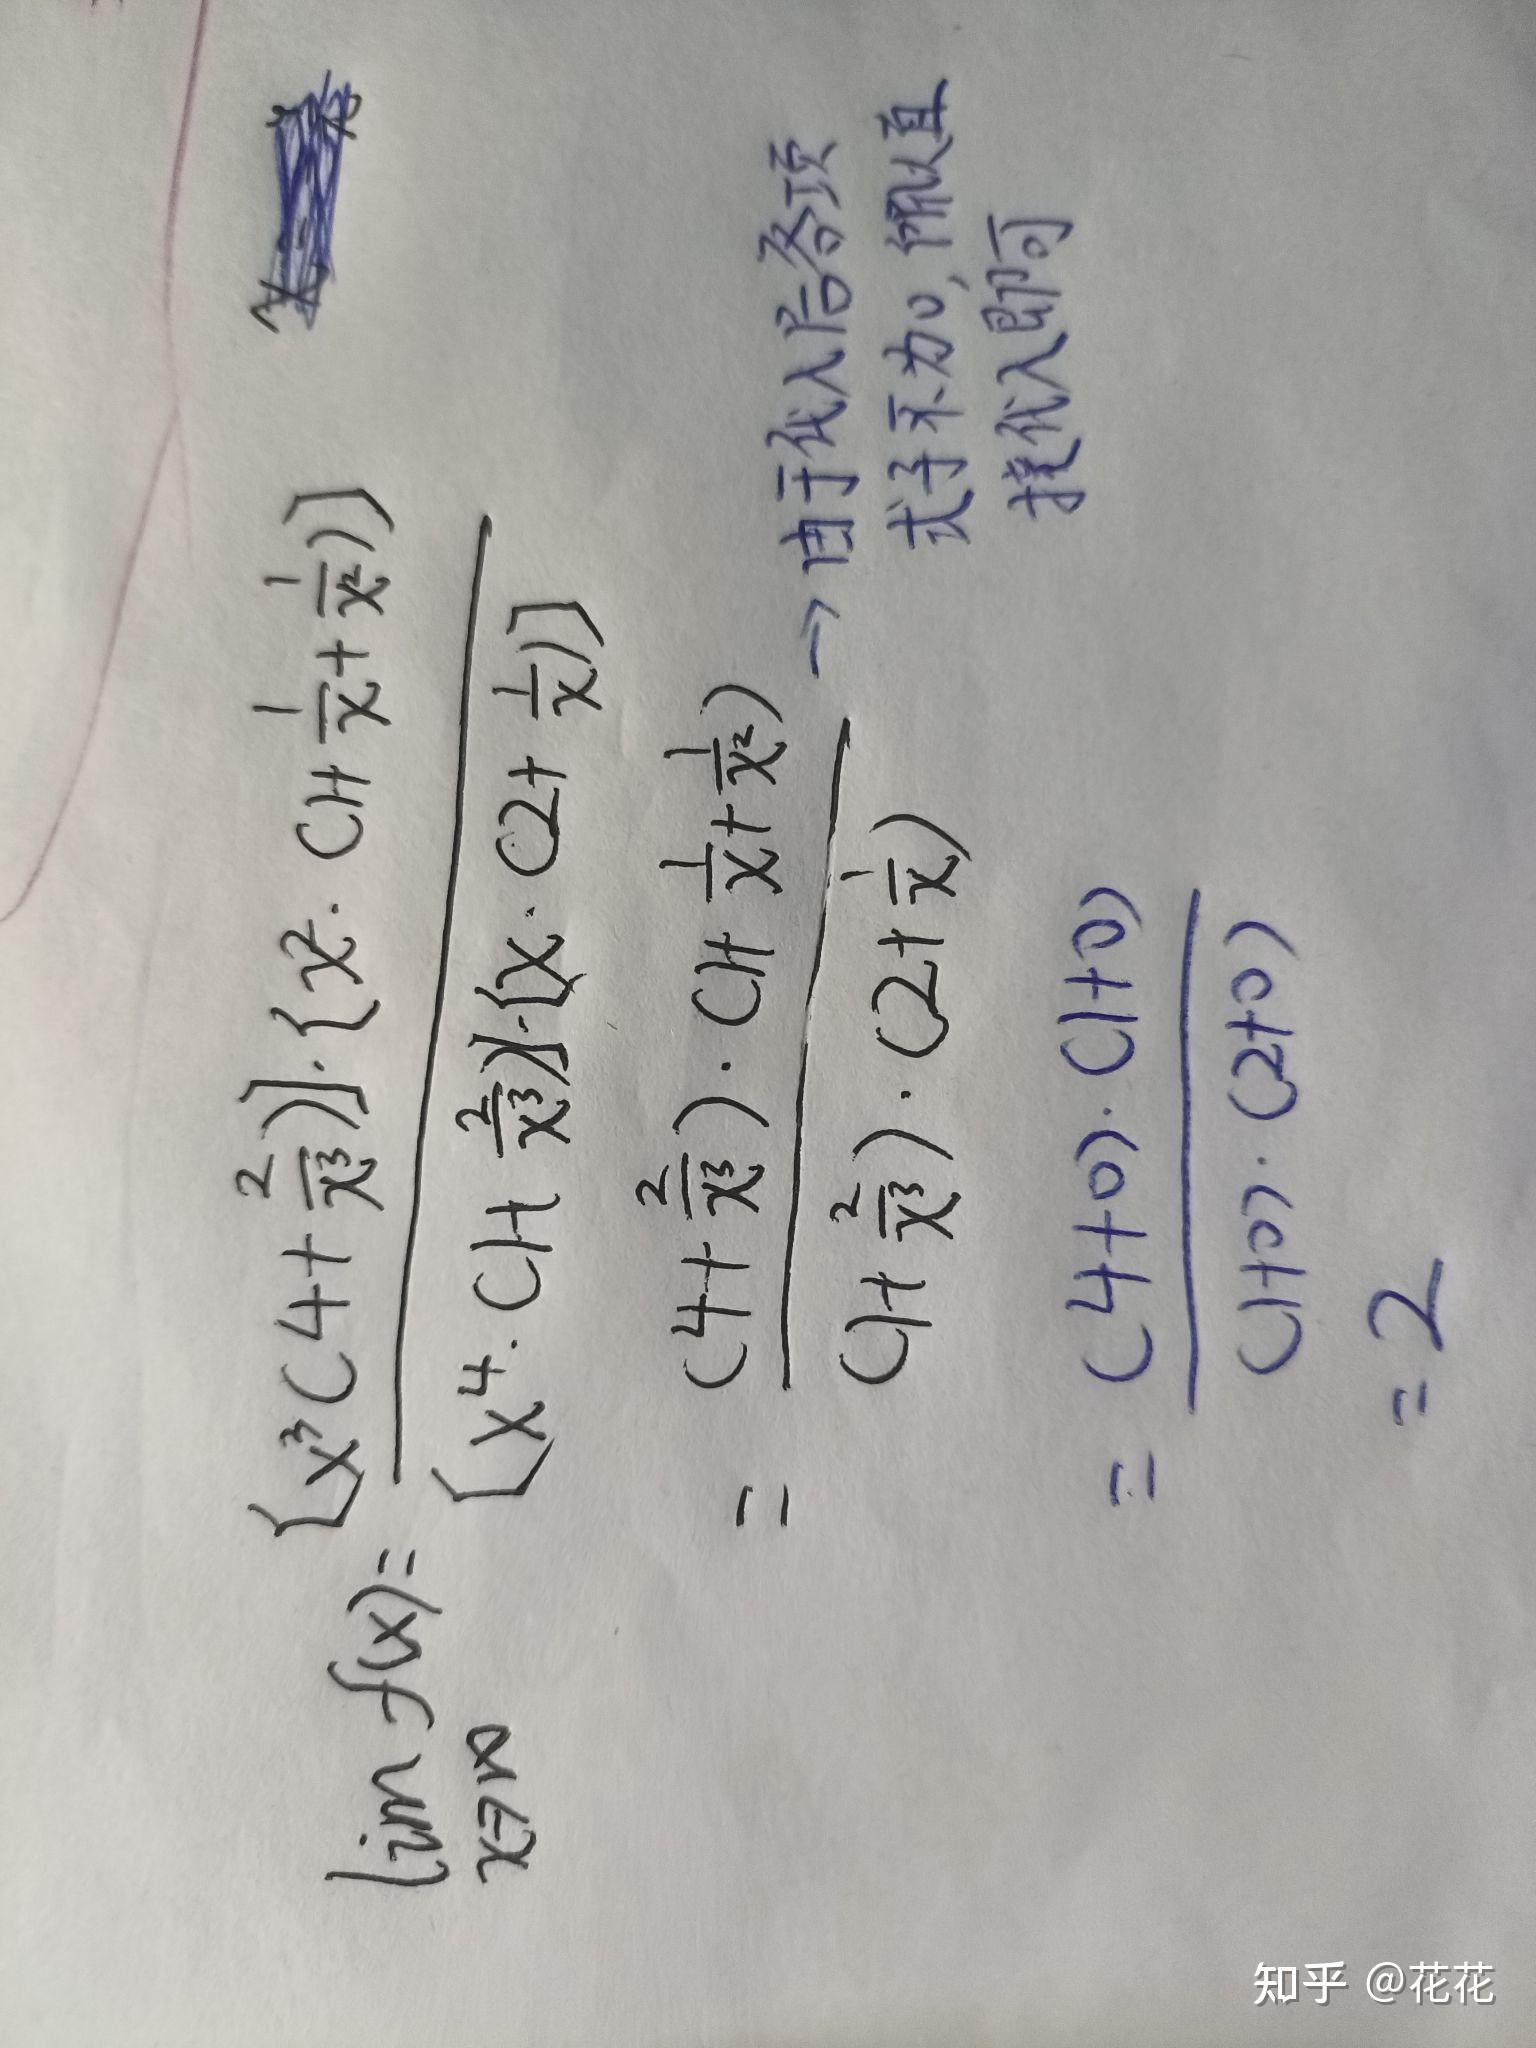 lim f(x) = {x³(4+2/x³)]·{x²·(1+1/x+1/x²)]
x→∞ [x⁴·(1+2/x³)]·{x·(2+1/x)]
= (4+2/x³)·(1+1/x+1/x²) → 由于代入后各项
(1+2/x³)·(2+1/x) 式子不为0,所以直
接代入即可
= (4+0)·(1+0)
(1+0)·(2+0)
= 2
知乎 @花花